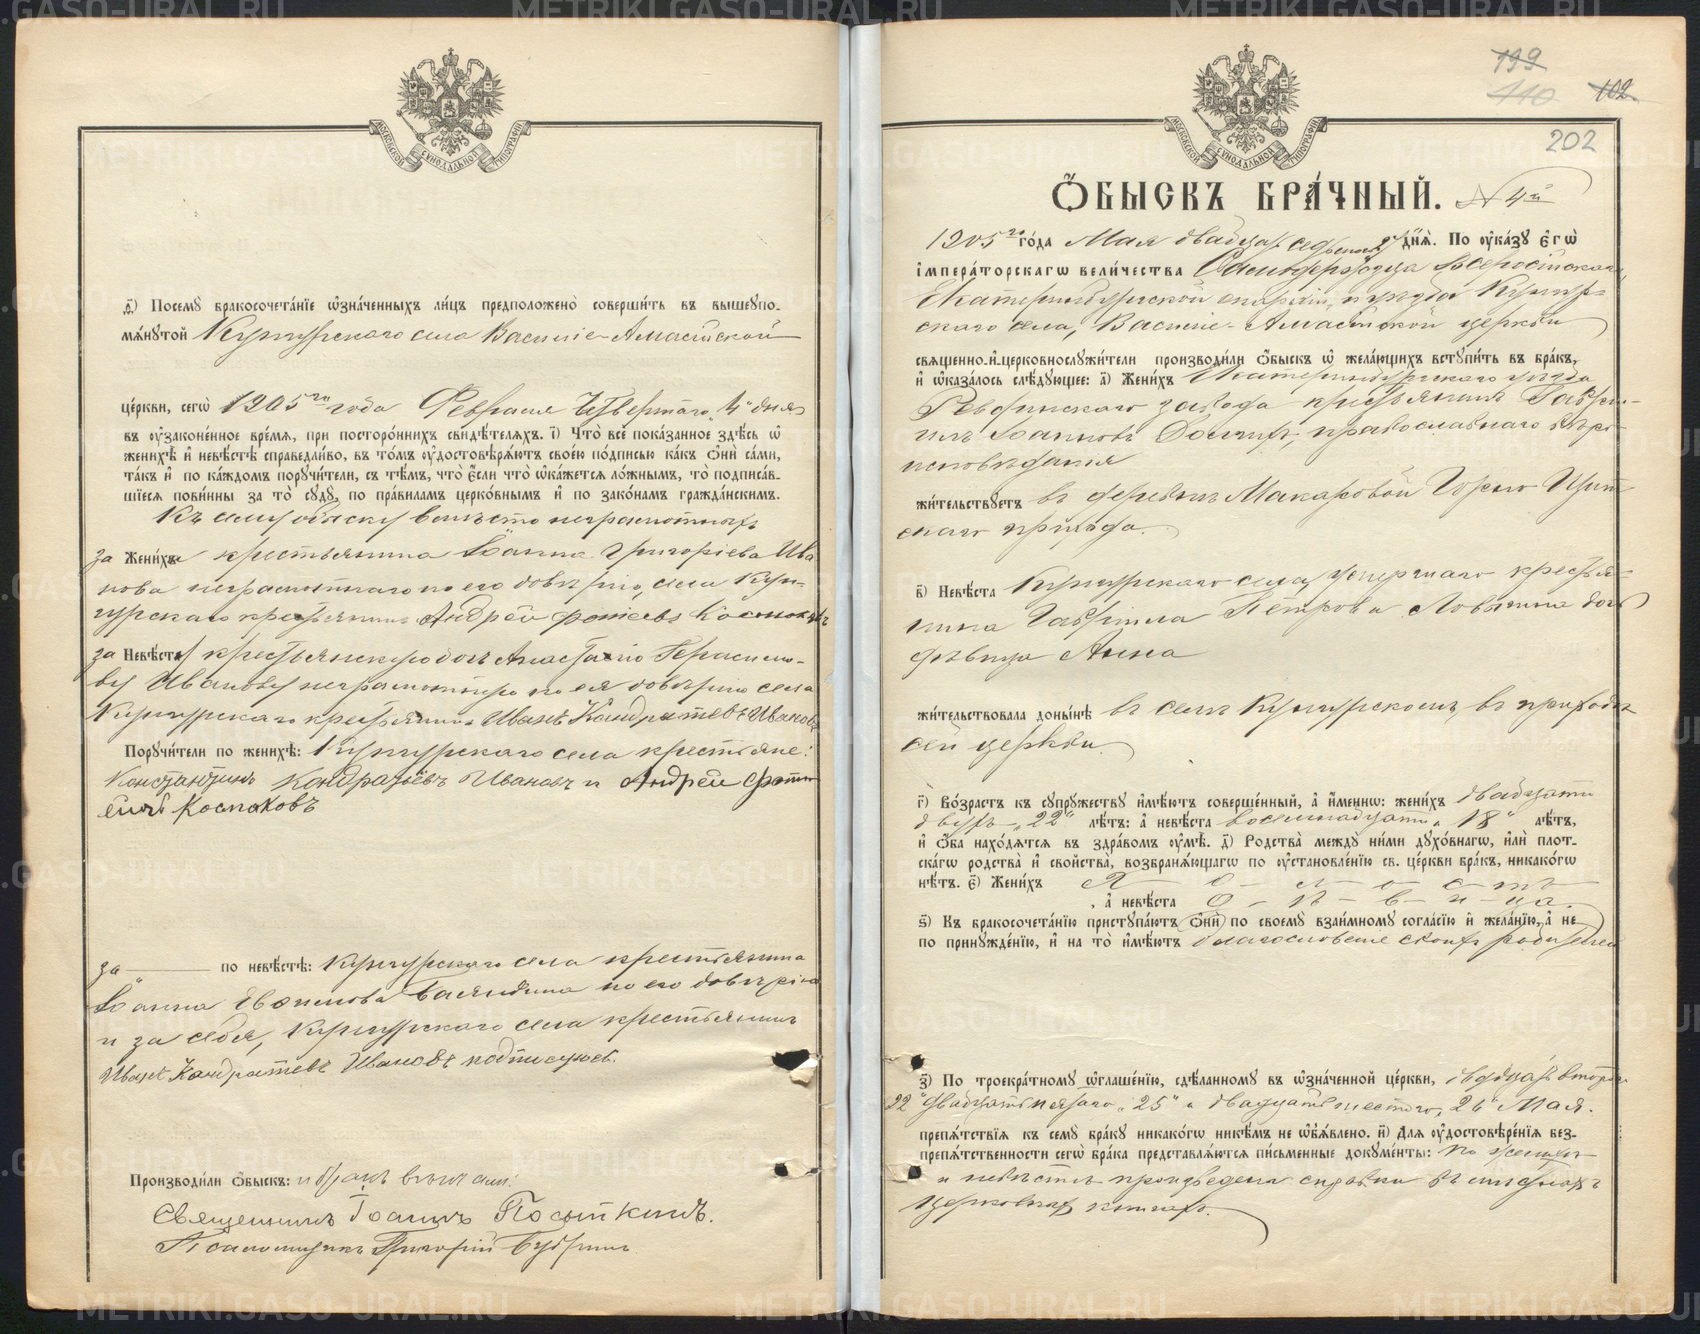 МОСКОВСКОЙ СѴНОДАЛЬНОЙ ТИПОГРАФІИ
д҃) Посемꙋ бракосочета́нїе ѡ҆зна́ченныхъ ли́цъ предположено̀ соверши́ть въ вышеꙋпо-
мѧ́нꙋтой Кунгурскаго села Василіе-Амасійской
це́ркви, сегѡ̀ 1905 го года Февраля Четвертаго „4" дня
въ ᲂу҆зако́ненное вре́мѧ, при посторо́ннихъ свидѣ́телѧхъ. і҃) Что̀ всѐ пока́занное здѣ́сь ѡ҆
женихѣ̀ и҆ невѣ́стѣ справедли́во, въ то́мъ ᲂу҆достовѣрѧ́ютъ своею по́дписью ка́къ ѻ҆нѝ са́ми,
та́къ и҆ по ка́ждомъ порꙋчи́тели, съ тѣ́мъ, что̀ є҆́сли что̀ ѡ҆ка́жетсѧ ло́жнымъ, то подписа́в-
шїесѧ пови́нны за то̀ сꙋдꙋ̀, по пра́виламъ церко́внымъ и҆ по зако́намъ гражда́нскимъ.
Къ сему обыску вместо неграмотныхъ
за Жени́хъа крестьянина Іоанна Григоріева Ива
нова неграмотнаго по его довѣрію, села Кун-
гурскаго крестьянинъ Андрей Фотеевъ Космаковъ
за Невѣ́стꙋ крестьянскую дочь Анастасію Герасимо-
ву Иванову неграмотную по ея довѣрію села
Кунгурскаго крестьянинъ Иванъ Кандратевъ Ивановъ
Порꙋчи́тели по женихѣ̀: Кунгурскаго села крестьяне:
Константинъ Кандратьевъ Ивановъ и Андрей Фоти
евичъ Космаковъ
за по невѣ́стѣ: Кунгурскаго села крестьянина
Іоанна Евфимова по его довѣрію
и за себя, Кунгурскаго села крестьянинъ
Иванъ Кандратевъ Ивановъ подписуюсь.
Производи́ли ѻ҆́быскъ: и бракъ вѣнчали:
Священникъ Іоаннъ Посыпкинъ.
Псаломщикъ Григорій Бубринъ
199
110 102
202
МОСКОВСКОЙ СѴНОДАЛЬНОЙ ТИПОГРАФІИ
Ѻ҆БЫСКЪ БРА́ЧНЫЙ. № 4й
1905 го го́да Мая двадцать седьмаго 27 днѧ̀. По ᲂу҆ка́зꙋ є҆гѡ̀
і҆мпера́торскагѡ вели́чества Самодержца Всероссійскаго,
Екатеринбургской епархіи, и уезда Кунгур-
скаго села, Василіе-Амасійской церкви
свѧщенно-и҆-церковнослꙋжи́тели производи́ли ѻ҆́быскъ ѡ҆ жела́ющихъ встꙋпи́ть въ бра́къ,
и҆ ѡ҆каза́лось слѣ́дꙋющее: а҃) Жени́хъ Екатеринбургскаго уезда
Ревдинскаго завода крестьянинъ Гаври-
илъ Іоанновъ православнаго вѣро-
исповѣданія
жи́тельствꙋетъ въ деревнѣ Макаровой Горно Щит-
скаго прихода.
в҃) Невѣ́ста Кунгурскаго села, умершаго крестья-
нина Гавріила Петрова дочь
дѣвица Анна
жи́тельствовала доны́нѣ въ селѣ Кунгурскомъ, въ приходѣ
сей церкви.
г҃) Во́зрастъ къ сꙋпрꙋ́жествꙋ и҆мѣ́ютъ соверше́нный, а҆ и҆́менно: жени́хъ двадцати
двухъ „22" лѣ́тъ: а҆ невѣ́ста восемнадцати „18" лѣ́тъ,
и҆ ѻ҆́ба нахо́дѧтсѧ въ здра́вомъ ᲂу҆мѣ̀. д҃) Родства̀ междꙋ ни́ми дꙋхо́внагѡ, и҆лѝ плот-
ска́гѡ родства̀ и҆ сво́йства, возбранѧ́ющагѡ по ᲂу҆становле́нїю св. це́ркви бра́къ, никако́гѡ
нѣ́тъ. є҃) Жени́хъ Х-о-л-о-с-тъ
, а҆ невѣ́ста Д-ѣ-в-и-ца.
ѕ҃) Къ бракосочета́нїю пристꙋпа́ютъ ѻ҆нѝ по своемꙋ̀ взаи́мномꙋ согла́сїю и҆ жела́нїю, а҆ не
по принꙋжде́нїю, и҆ на то̀ и҆мѣ́ютъ благословеніе своихъ родителей
з҃) По троекра́тномꙋ ѡ҆глаше́нїю, сдѣ́ланномꙋ въ ѡ҆зна́ченной це́ркви, двадцать втораго
22 двадцать пятаго „25" и двадцать шестого, 26" Мая.
препѧ́тствїѧ къ семꙋ̀ бра́кꙋ никако́гѡ никѣ́мъ не ѡ҆б̾ѧ́влено. и҃) Длѧ ᲂу҆достовѣре́нїѧ без-
препѧ́тственности сегѡ̀ бра́ка представлѧ́ютсѧ пи́сьменные докꙋме́нты: По женихѣ
и невѣстѣ произведены справки въ
церковныхъ книгахъ.
METRIKI.GASO-URAL.RU